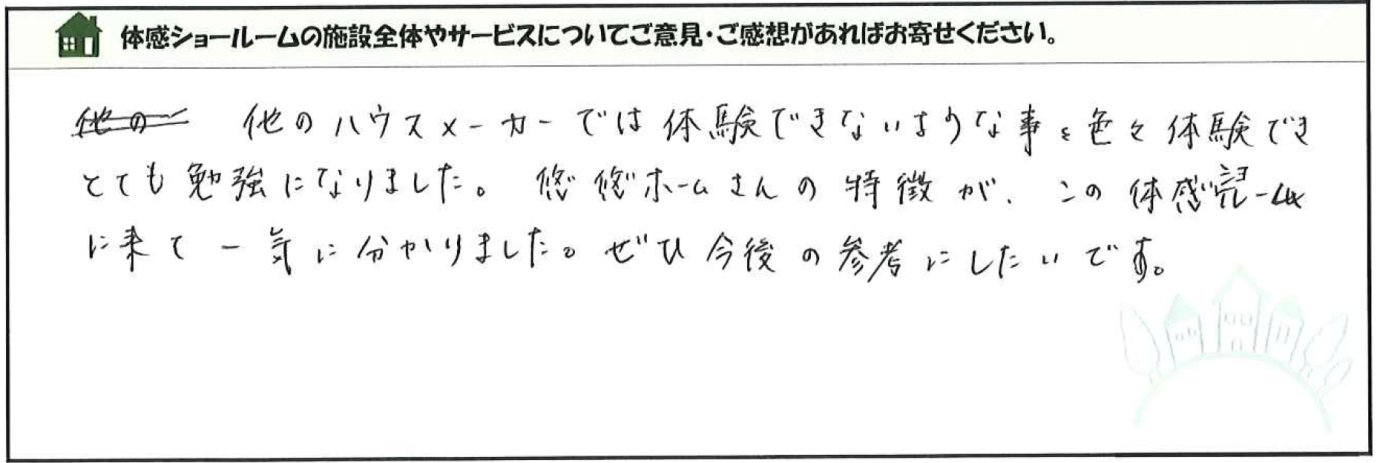 体感ショールームの施設全体やサービスについてご意見・ご感想があればお寄せください。
他の 他のハウスメーカーでは体験できないような事を色々体験でき
とても勉強になりました。悠悠ホームさんの特徴が、この体感ショールーム
に来て一気に分かりました。ぜひ今後の参考にしたいです。